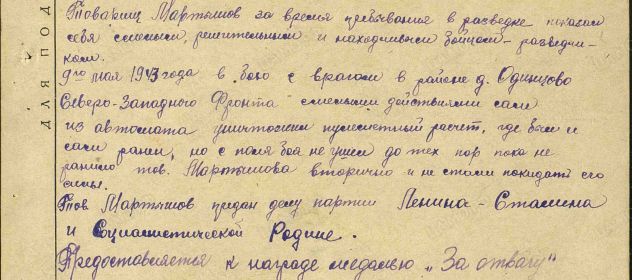 ДЛЯ ПОД
Товарищ Мартышов за время пребывания в разведке показал
себя смелым, решительным и находчивым бойцом-разведчи-
ком.
9го мая 1943 года в бою с врагом в районе д. Одинцово
Северо-Западного Фронта смелыми действиями сам
из автомата уничтожил пулеметный расчет, где был и
сам ранен, но с поля боя не ушел до тех пор пока не
ранило тов. Мартышова вторично и не стали покидать его
силы.
Тов Мартышов предан делу партии Ленина-Сталина
и Социалистической Родине.
Предоставляется к награде медалью „За отвагу"